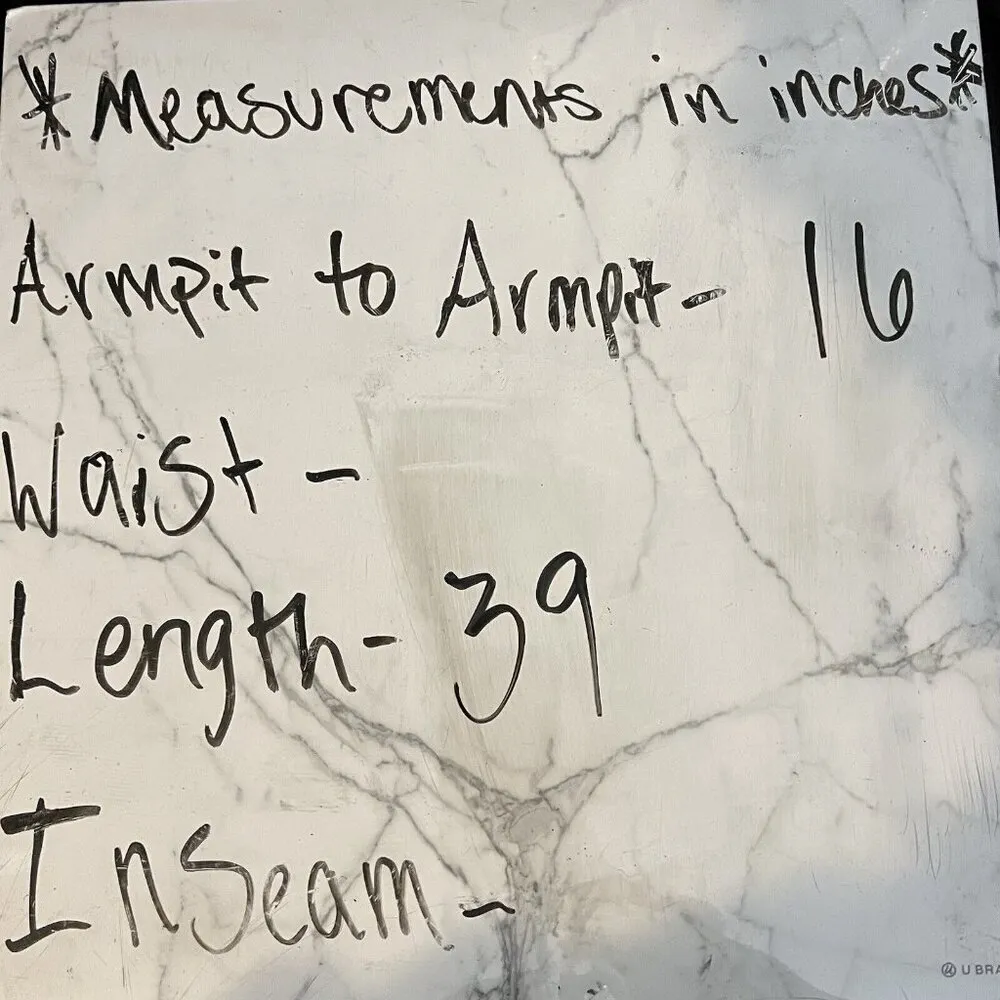 *Measurements in inches*
Armpit to Armpit- 16
Waist -
Length- 39
Inseam -
U BRA